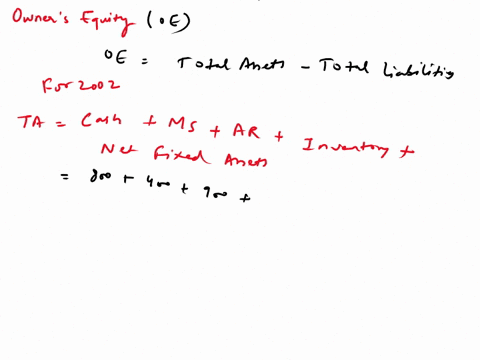 Owner's Equity (OE)
OE = Total Assets - Total Liabilities
For 2002
TA = Cash + MS + AR + Inventory +
Net Fixed Assets
= 800 + 400 + 900 +